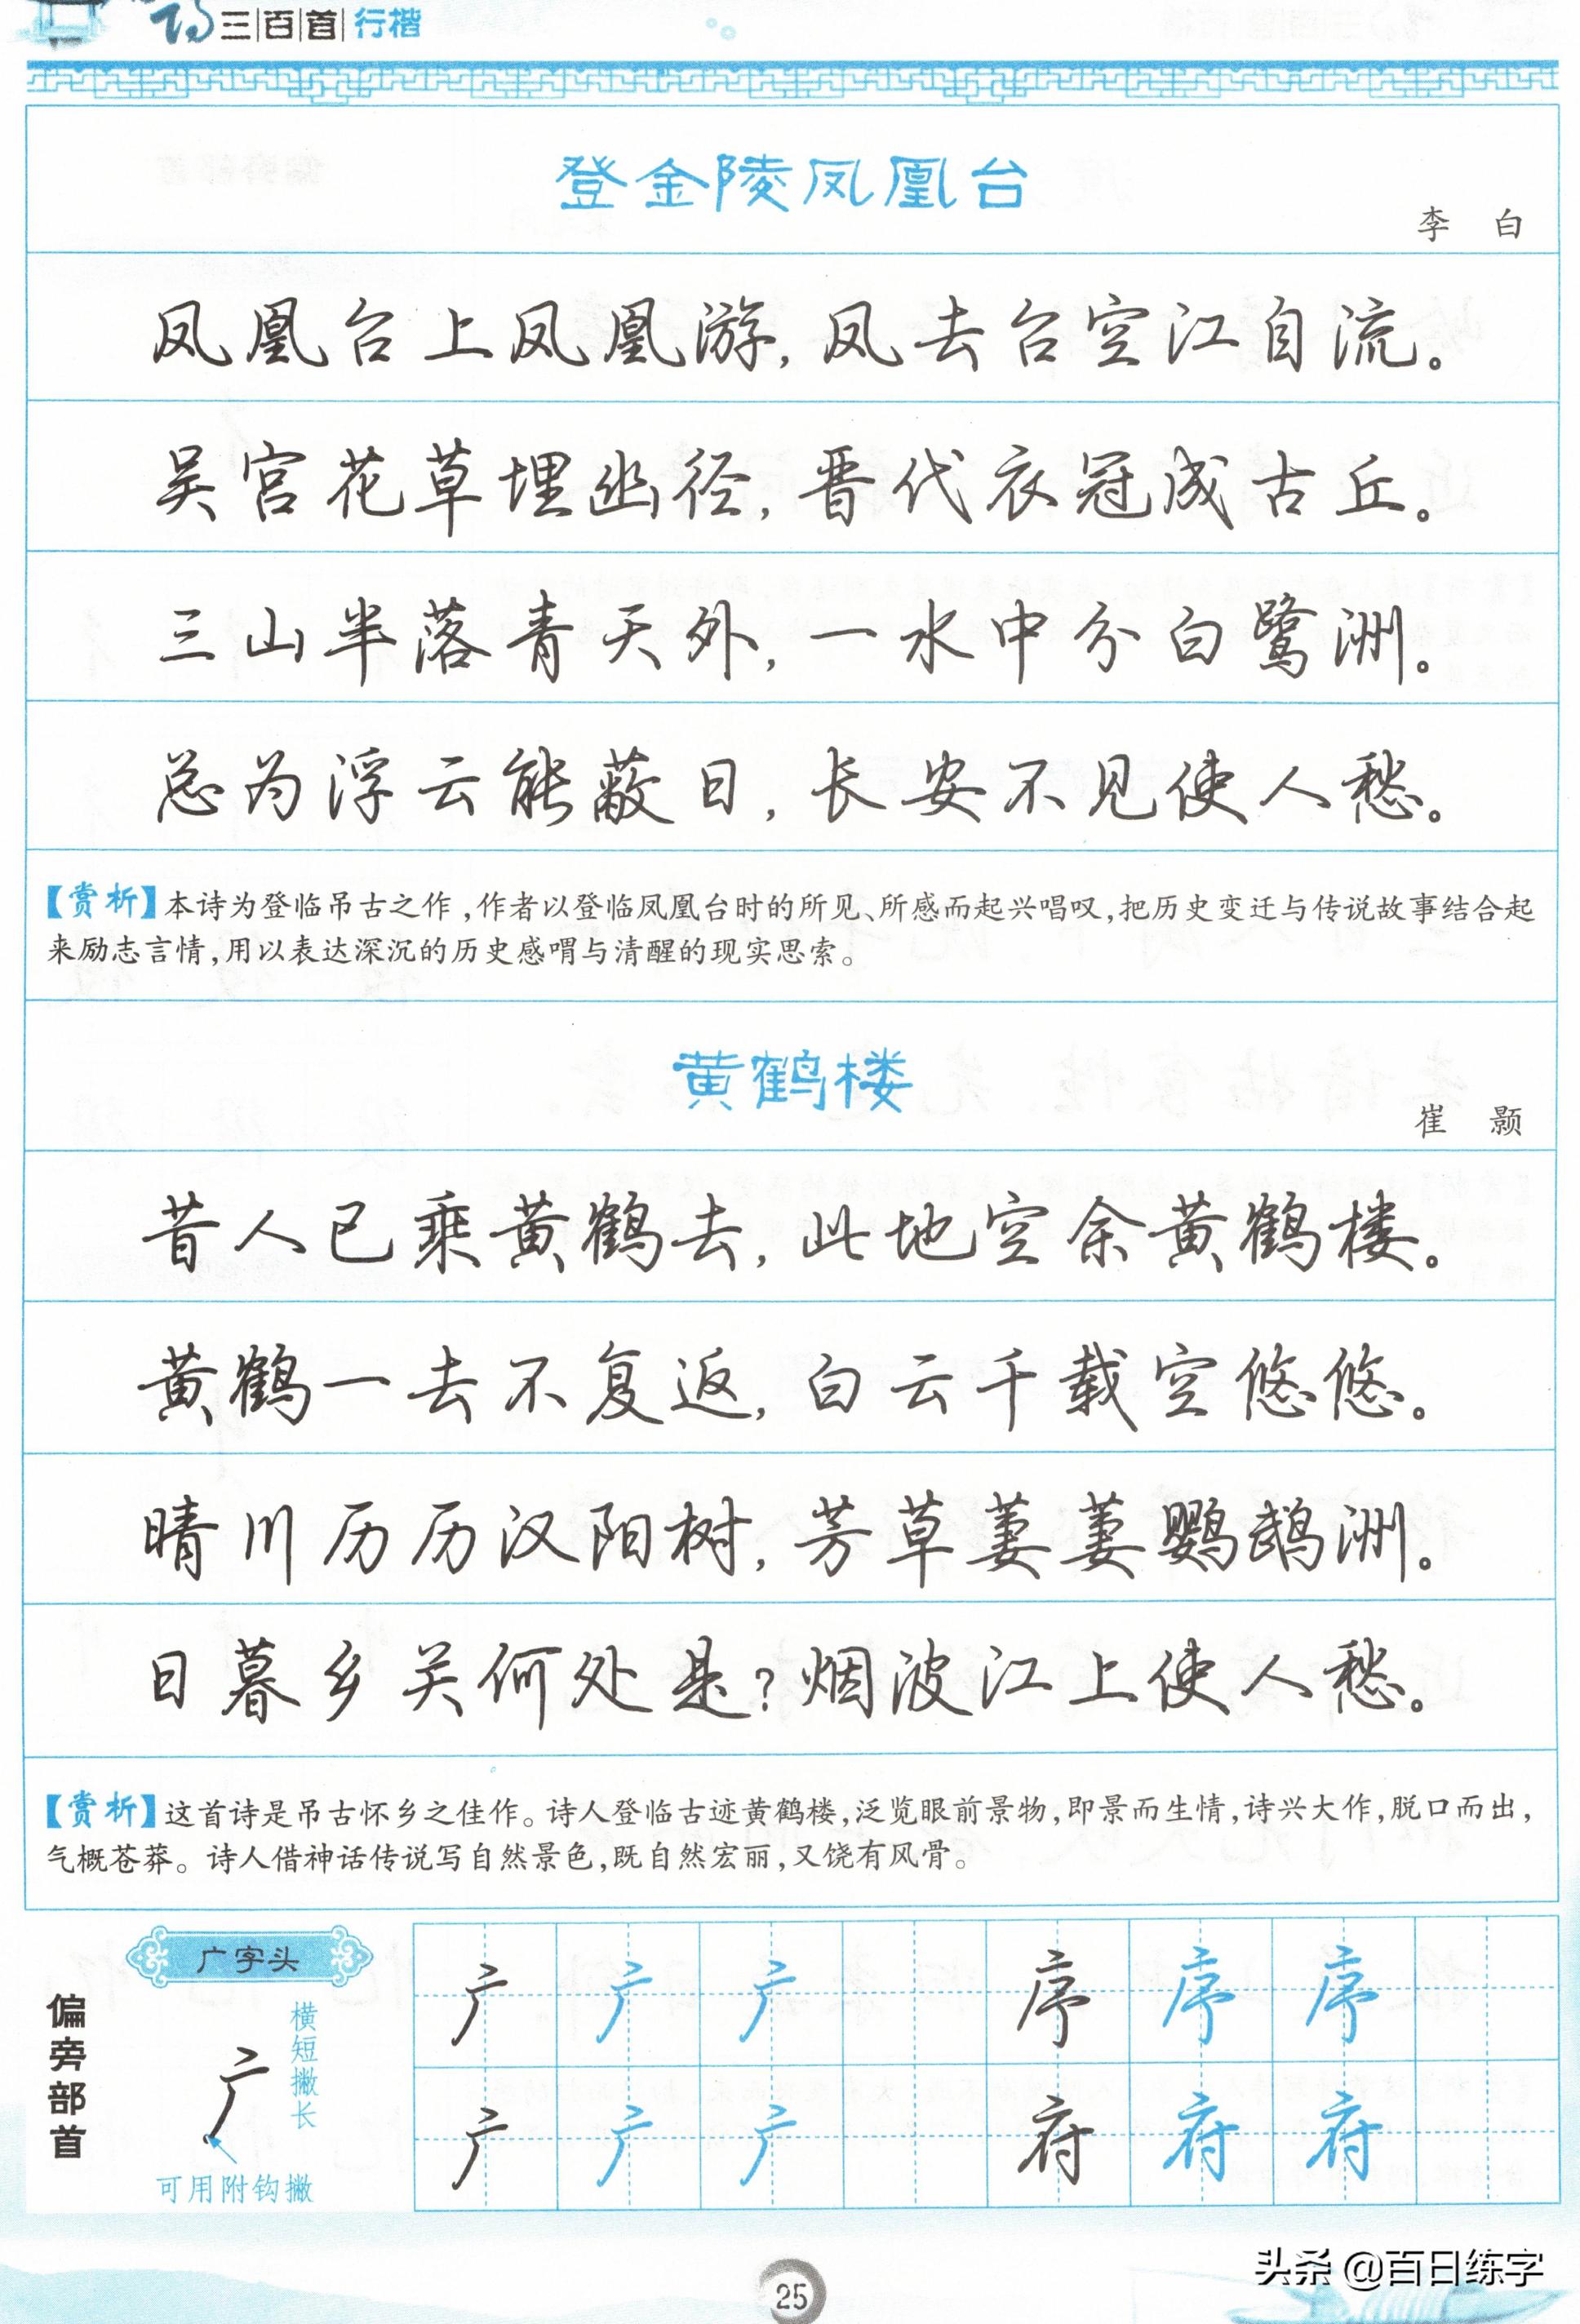 诗三百首行楷
登金陵凤凰台
李 白
凤凰台上凤凰游,凤去台空江自流。
吴宫花草埋幽径,晋代衣冠成古丘。
三山半落青天外,一水中分白鹭洲。
总为浮云能蔽日,长安不见使人愁。
【赏析】本诗为登临吊古之作,作者以登临凤凰台时的所见、所感而起兴唱叹,把历史变迁与传说故事结合起
来励志言情,用以表达深沉的历史感喟与清醒的现实思索。
黄鹤楼
崔 颢
昔人已乘黄鹤去,此地空余黄鹤楼。
黄鹤一去不复返,白云千载空悠悠。
晴川历历汉阳树,芳草萋萋鹦鹉洲。
日暮乡关何处是?烟波江上使人愁。
【赏析】这首诗是吊古怀乡之佳作。诗人登临古迹黄鹤楼,泛览眼前景物,即景而生情,诗兴大作,脱口而出,
气概苍莽。诗人借神话传说写自然景色,既自然宏丽,又饶有风骨。
偏旁部首
广字头
广
横短撇长
可用附钩撇
广 广 广 序 序 序
广 广 广 府 府 府
25
头条 @百日练字